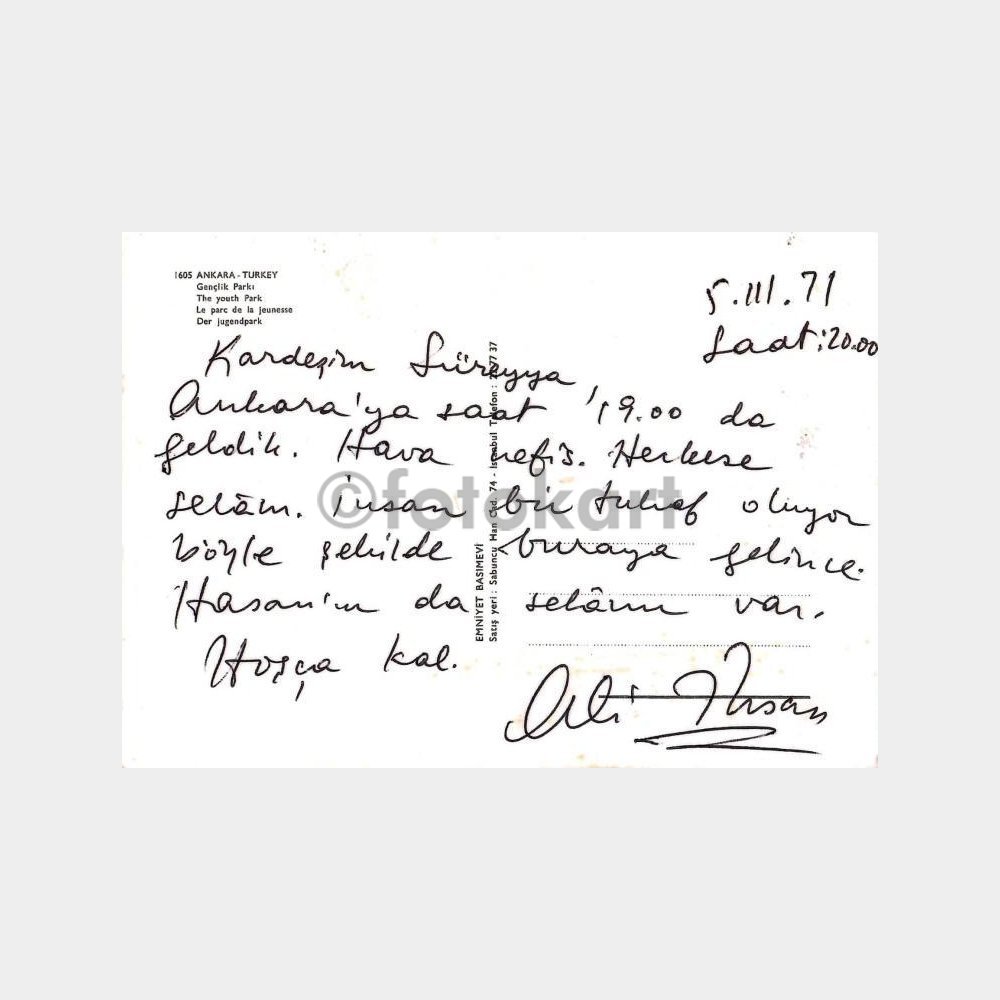 1605 ANKARA - TURKEY
Gençlik Parkı
The youth Park
Le parc de la jeunesse
Der jugendpark
5.III.71
Saat:20.00
Kardeşim Süreyya,
Ankara'ya saat 19.00 da
geldik. Hava nefis. Herkese
selâm. İnsan bir tuhaf oluyor
böyle şekilde buraya gelince.
Hasan'ım da selâmı var.
Hoşça kal.
Ali İhsan
EMNİYET BASIMEVİ
Satış yeri : Sabuncu Han Cad. 74 - İstanbul Telefon : 77 37
©fotokart